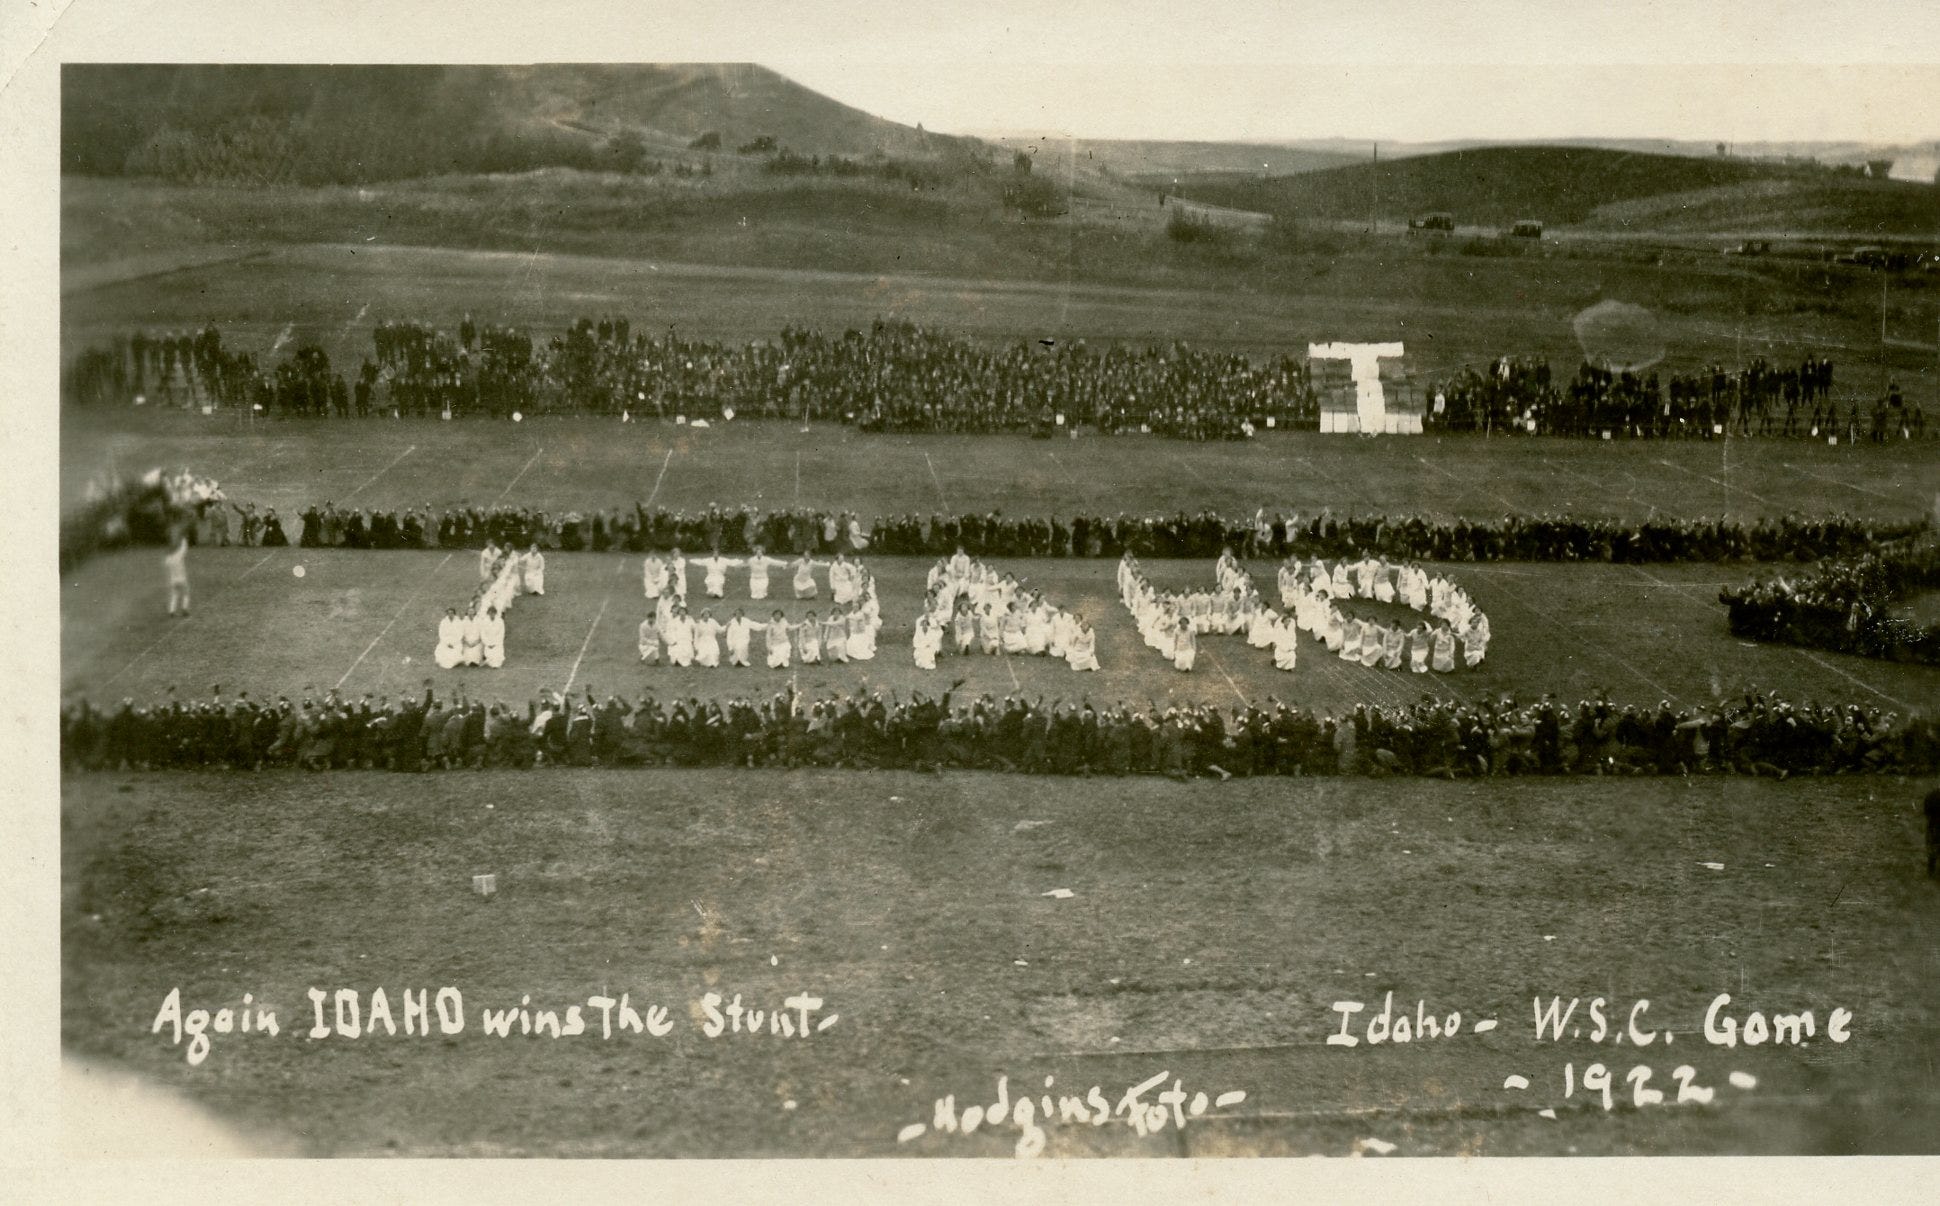 I
IDAHO
Again IDAHO wins The Stunt-
Idaho - W.S.C. Game
- 1922 -
- Hodgins Foto -